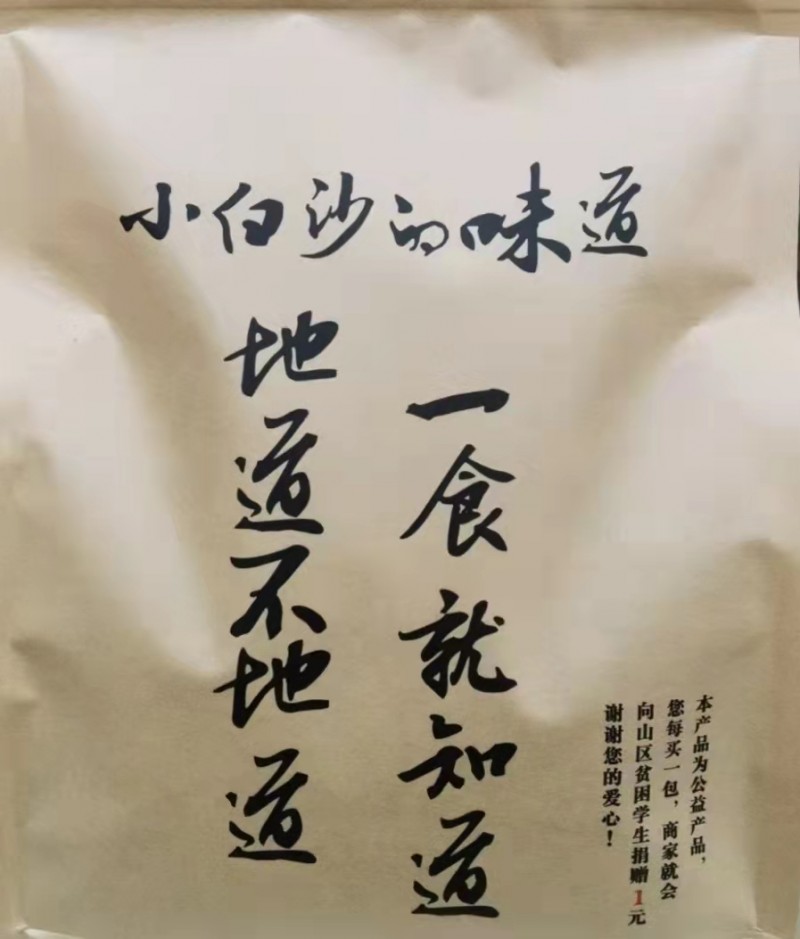 小白沙的味道
地道不地道
一食就知道
本产品为公益产品，
您每买一包，商家就会
向山区贫困学生捐赠1元
谢谢您的爱心！